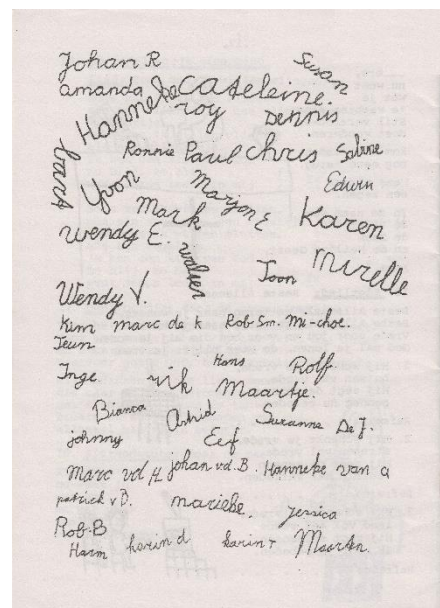 Johan R
Susan
amanda
Hanneke
Cateleine.
roy
Dennis
bart
Ronnie Paul Chris Sabine
Yvon
Marjon E
Edwin
Mark
Karen
Wendy E.
Toon
Mirelle
Wendy V.
Kim marc de k Rob Sm. Mi-choe.
Teun
Inge. rik Hans Rolf
Maartje.
Bianca Astrid Suzanne De J.
johnny Eef
Marc vd H johan vd. B. Hanneke van a
patrick v D. marieke. Jessica
Rob-B
Harm karin d karin r Maarten.